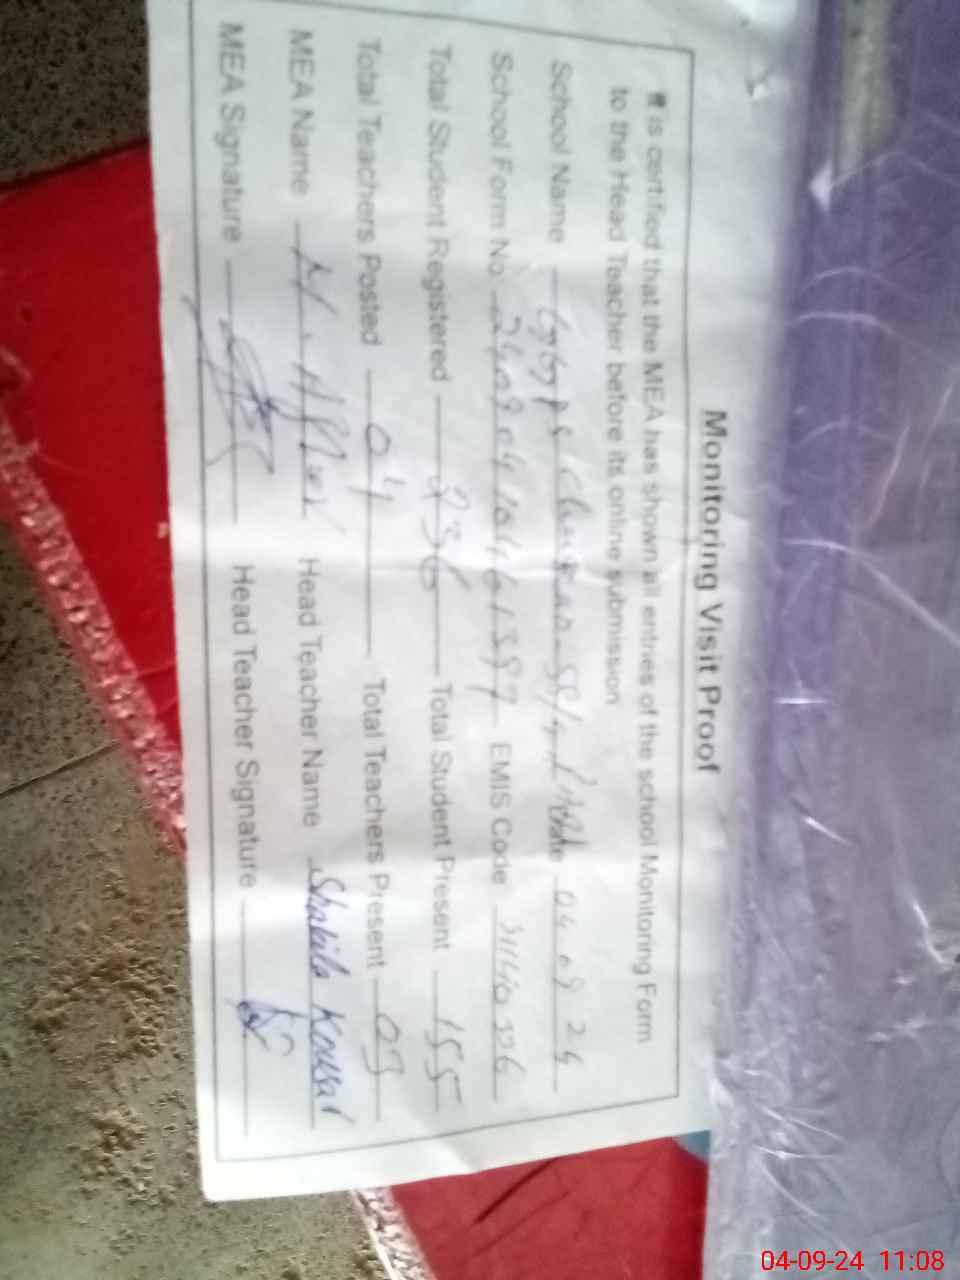 Monitoring Visit Proof
It is certified that the MEA has shown all entries of the school Monitoring Form
to the Head Teacher before its online submission
School Name Date 04.09 24
School Form No. EMIS Code
Total Student Registered 236 Total Student Present 155
Total Teachers Posted 04 Total Teachers Present 03
MEA Name Head Teacher Name Shakila Kousar
MEA Signature Head Teacher Signature
04-09-24 11:08